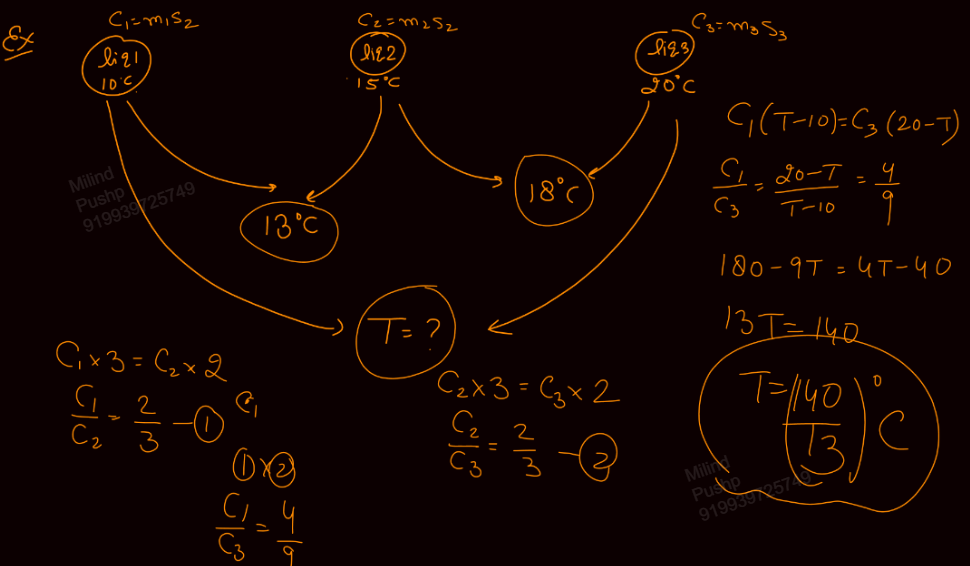 Ex
C₁=m₁s₂
liq1
10°C
C₂=m₂s₂
liq2
15°C
C₃=m₃s₃
liq3
20°C
13°C
18°C
T=?
Milind
Pushp
919939725749
C₁×3=C₂×2
C₁/C₂=2/3 —①
C₁
①×②
C₁/C₃=4/9
C₂×3=C₃×2
C₂/C₃=2/3 —②
C₁(T-10)=C₃(20-T)
C₁/C₃=20-T/T-10=4/9
180-9T=4T-40
13T=140
T=(140/13)°C
Milind
Pushp
919939725749